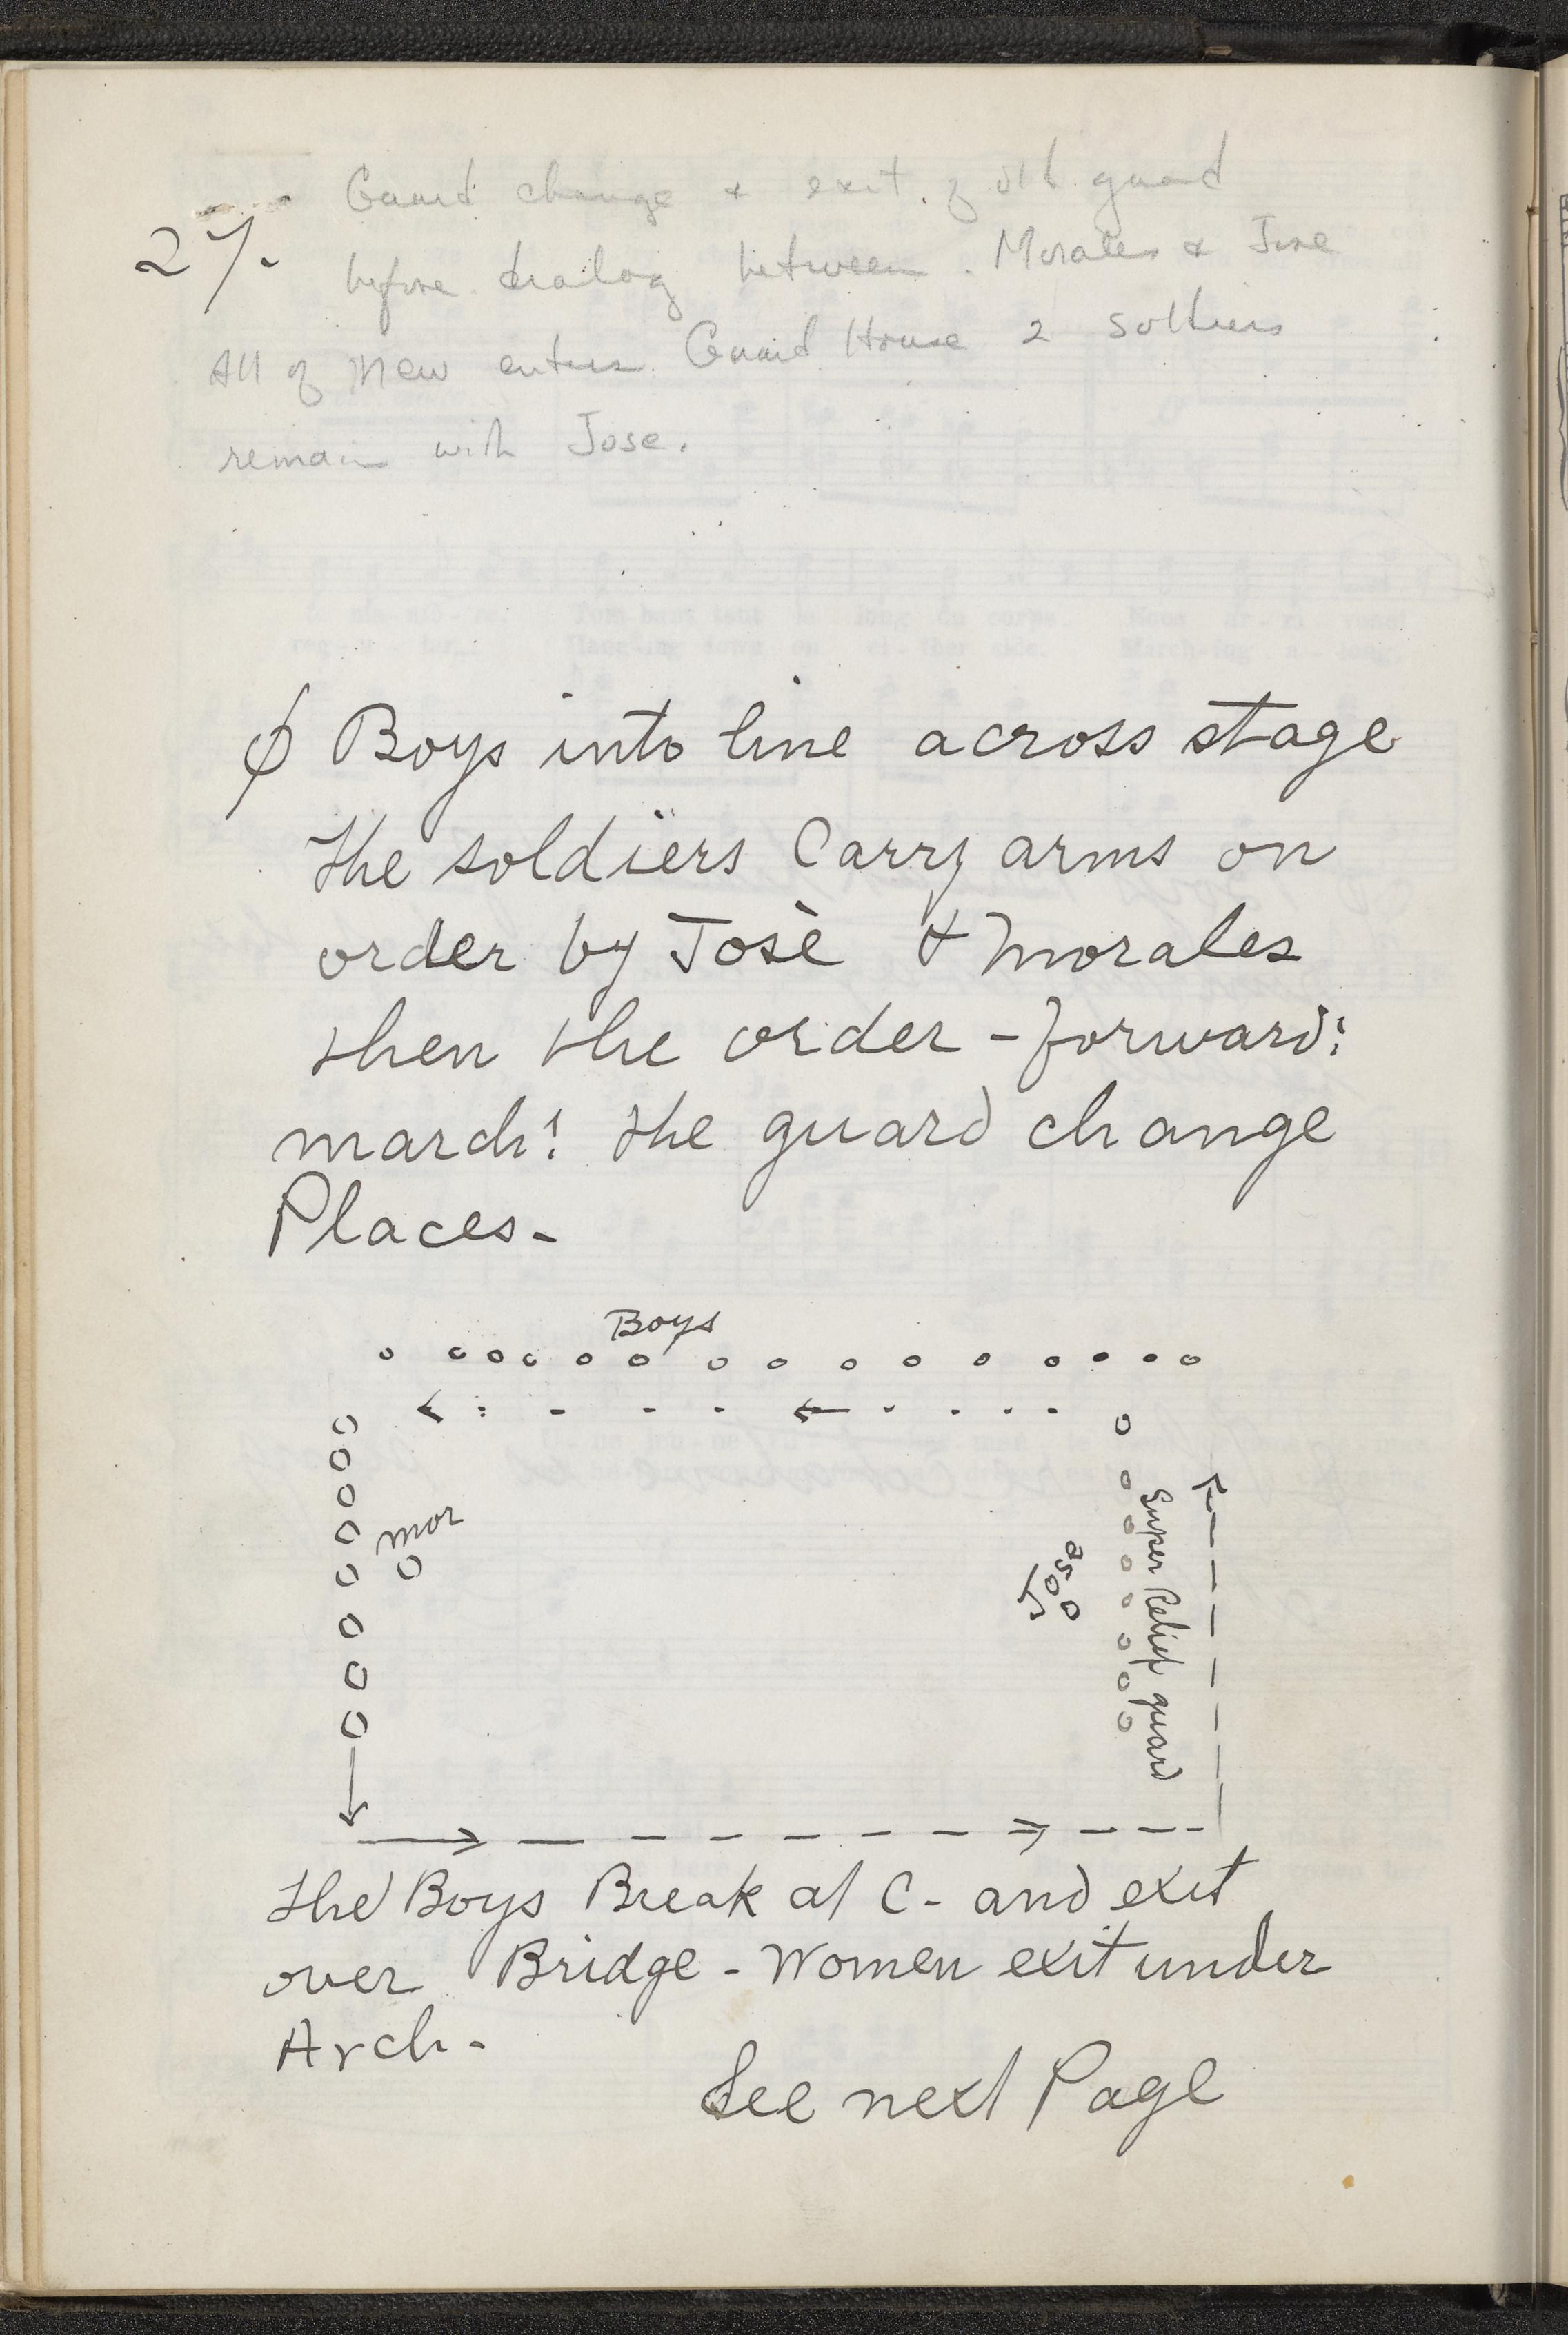 Guard change & exit of old guard
27.
before dialog between Morales & Jose
All of new enters Guard House 2 soldiers
remain with Jose.
ϕ Boys into line across stage
the soldiers Carry arms on
order by Josè & Morales
then the order - forward!
march! the guard change
Places -
Boys
mor
Jose
Super Relief guard
the Boys Break at C - and exit
over Bridge - Women exit under
Arch -
See next Page